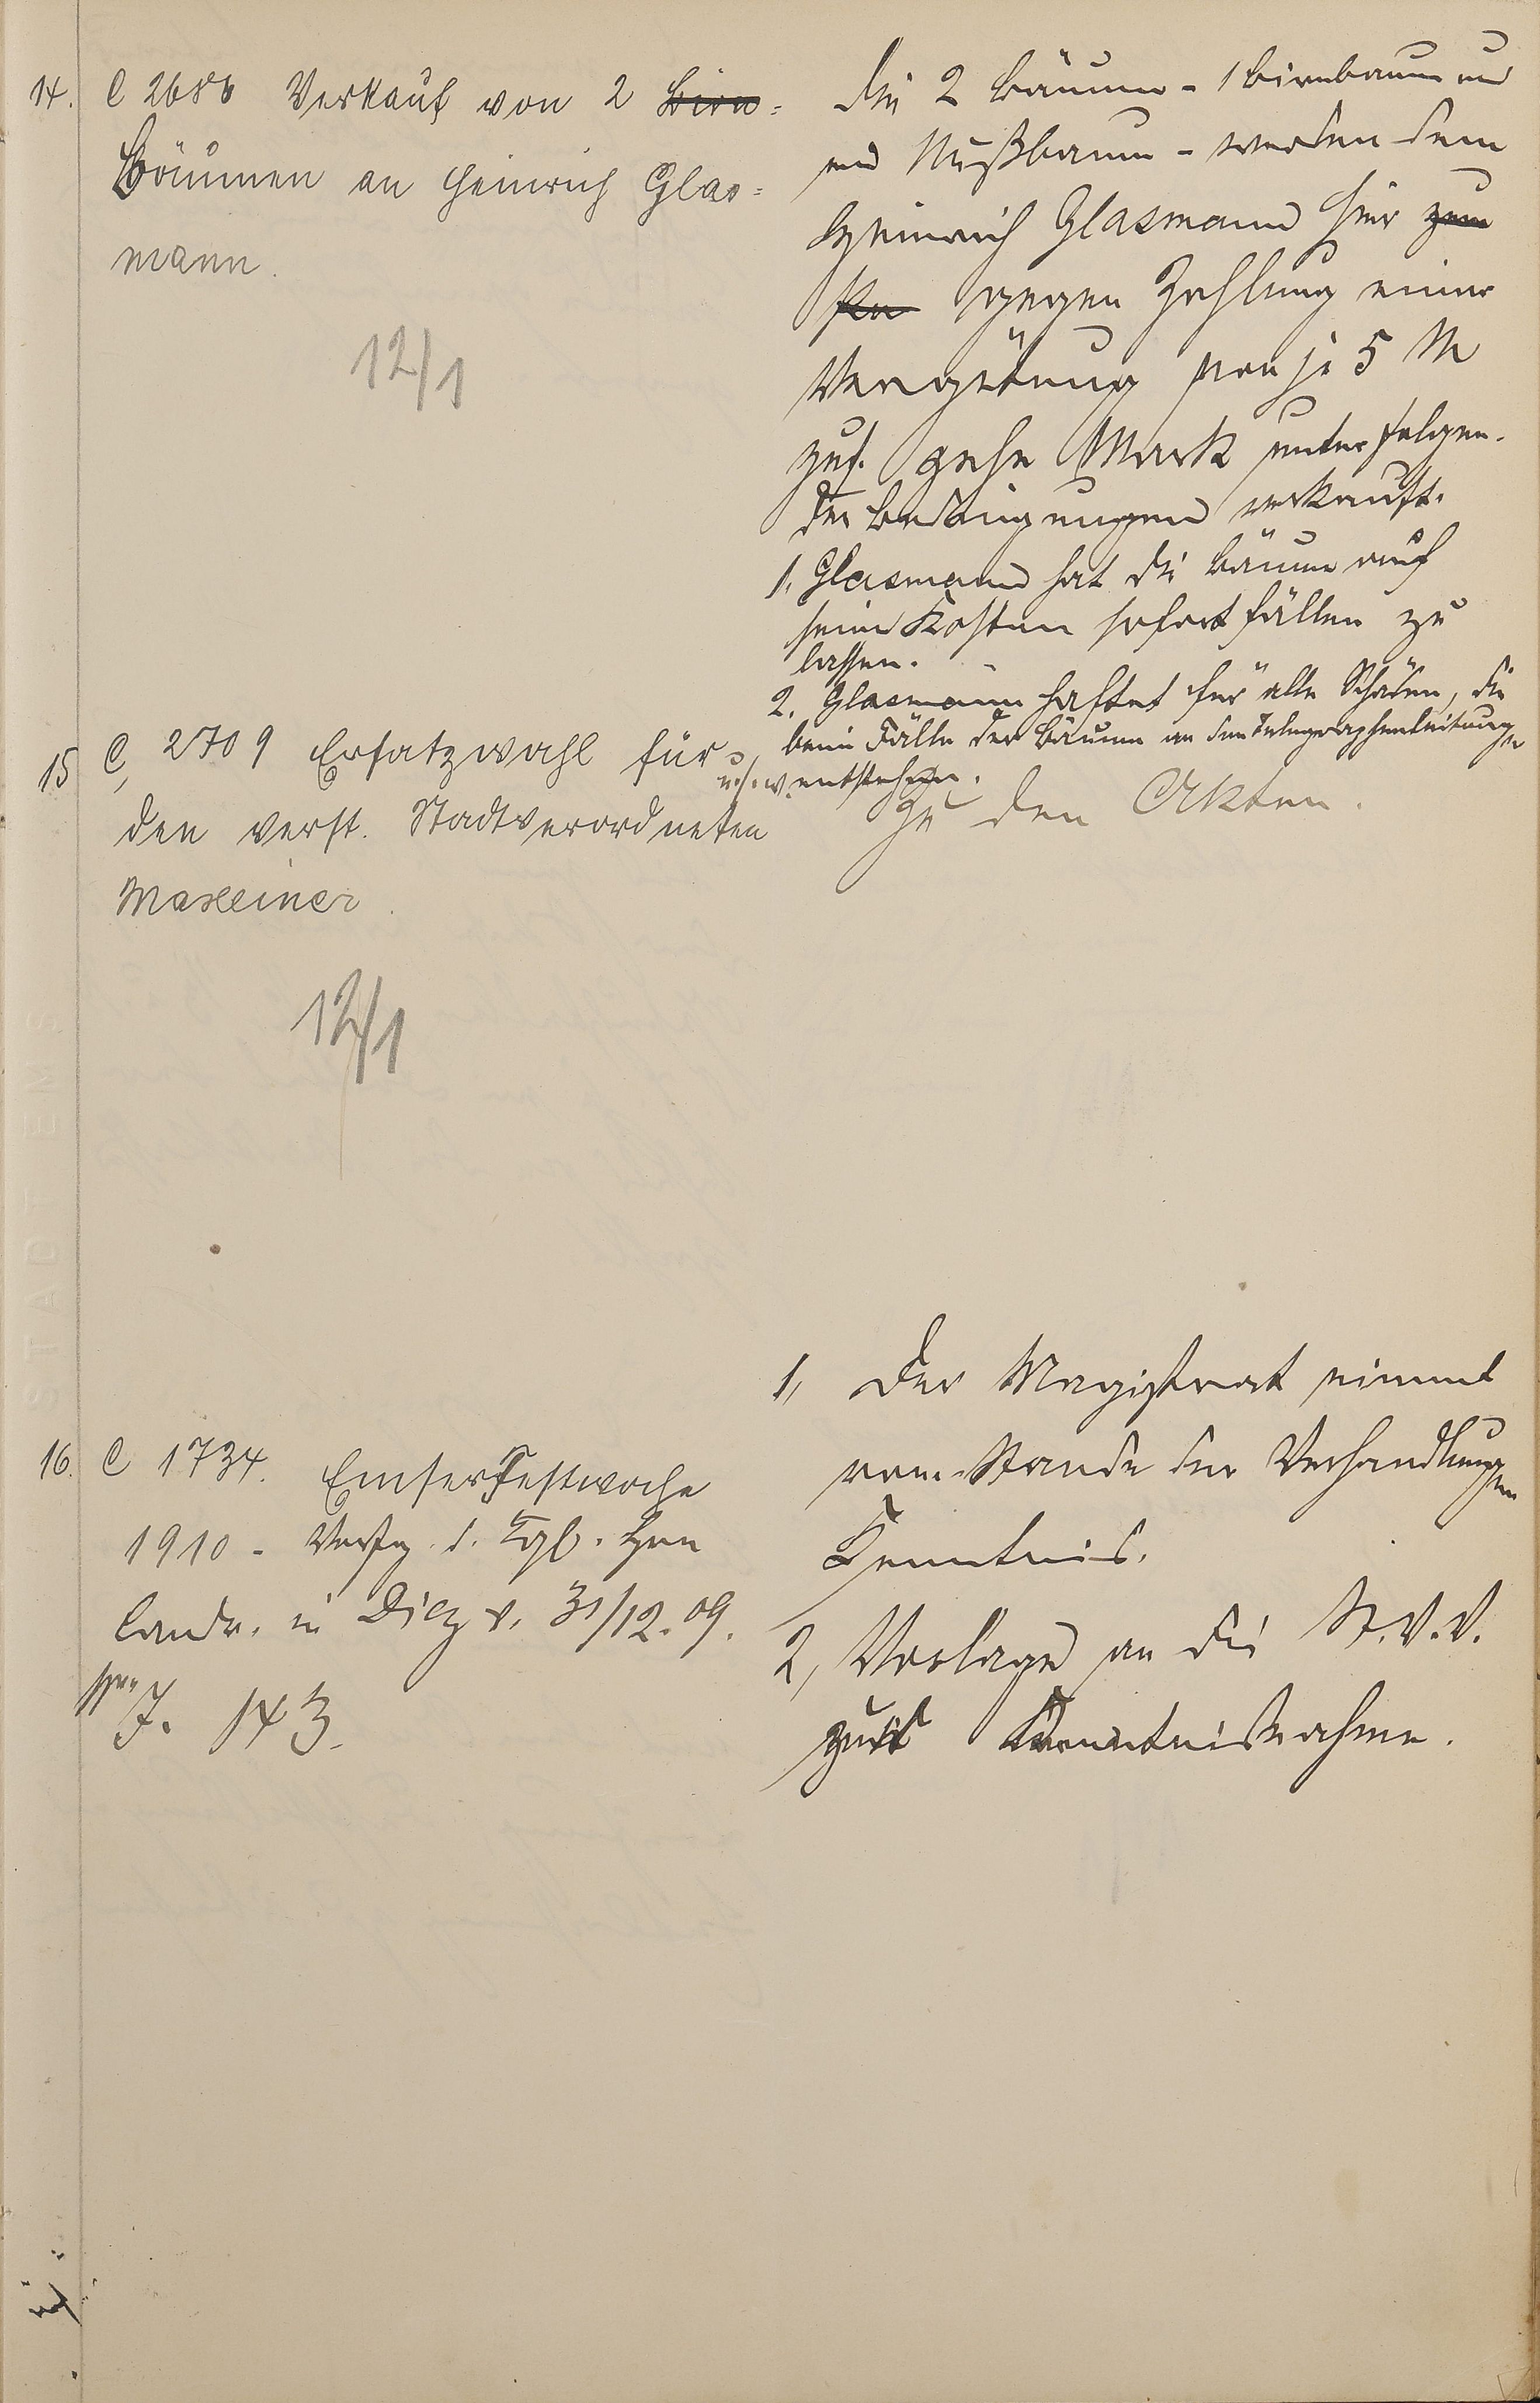 14. C 2686 Verkauf von 2 Birn=
Bäumen an Heinrich Glas=
mann.
12/1
Die 2 Bäume - 1 Birnbaum und
und Nußbaum - werden dem
Heinrich Glasmann hier zum
gegen Zahlung einer
Vergütung von je 5 M
zus. zehn Mark unter folgen-
den Bedingungen verkauft.
1. Glasmann hat die Bäume auf
seine Kosten sofort fällen zu
lassen.
2. Glasmann haftet für alle Schäden, die
beim Fälle der Bäume an den Telegraphenleitungen
u.s.w. entstehen.
15 C, 2709 Ersatzwahl für
den verst. Stadtverordneten
Maxeiner.
12/1
Zu den Akten.
16. C 1734. Emser Festwoche
1910 - Verfg. d. Kgl. Hrn
Landr. in Diez v. 31/12.09.
J. 143.
1, Der Magistrat nimmt
vom Stande der Verhandlungen
Kenntnis.
2, Vorlage an die St.V.V.
zur Kenntnisnahme.
STADT EMS